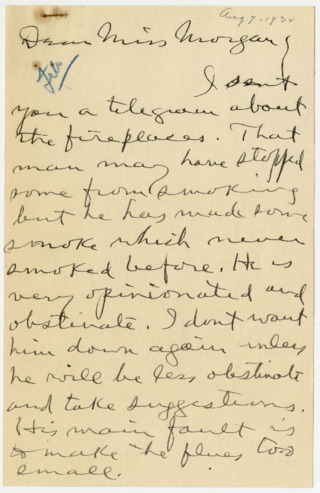 Aug 7-1922
Dear Miss Morgan,
File
I sent
you a telegram about
the fireplaces. That
man may have stopped
some from smoking
but he has made some
smoke which never
smoked before. He is
very opinionated and
obstinate. I dont want
him down again unless
he will be less obstinate
and take suggestions.
His main fault is
to make the flues too
small.